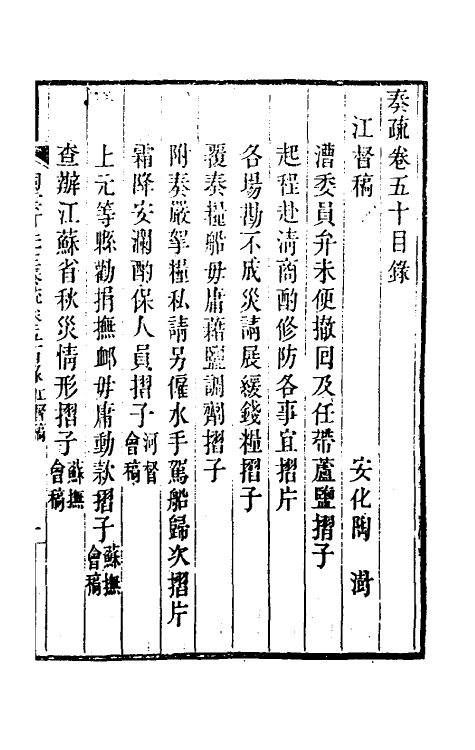 奏疏卷五十目錄
江督稿　安化陶　澍
漕委員弁未便撤回及任帶蘆鹽摺子
起程赴清商酌修防各事宜摺片
各場勘不成災請展緩錢糧摺子
覆奏糧船毋庸藉鹽調劑摺子
附奏嚴拏糧私請另僱水手駕船歸次摺片
霜降安瀾酌保人員摺子河督會稿
上元等縣勸捐撫衈毋庸動款摺子蘇撫會稿
查辦江蘇省秋災情形摺子蘇撫會稿